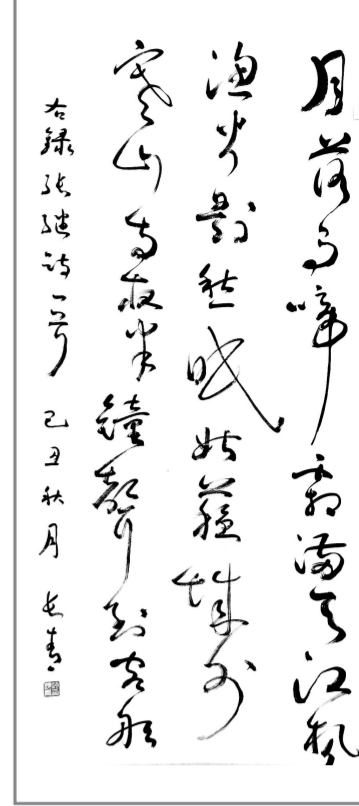 月落烏啼霜滿天江楓
漁火對愁眠姑蘇城外
寒山寺夜半鐘聲到客船
右録張繼詩一首 己丑秋月 長青